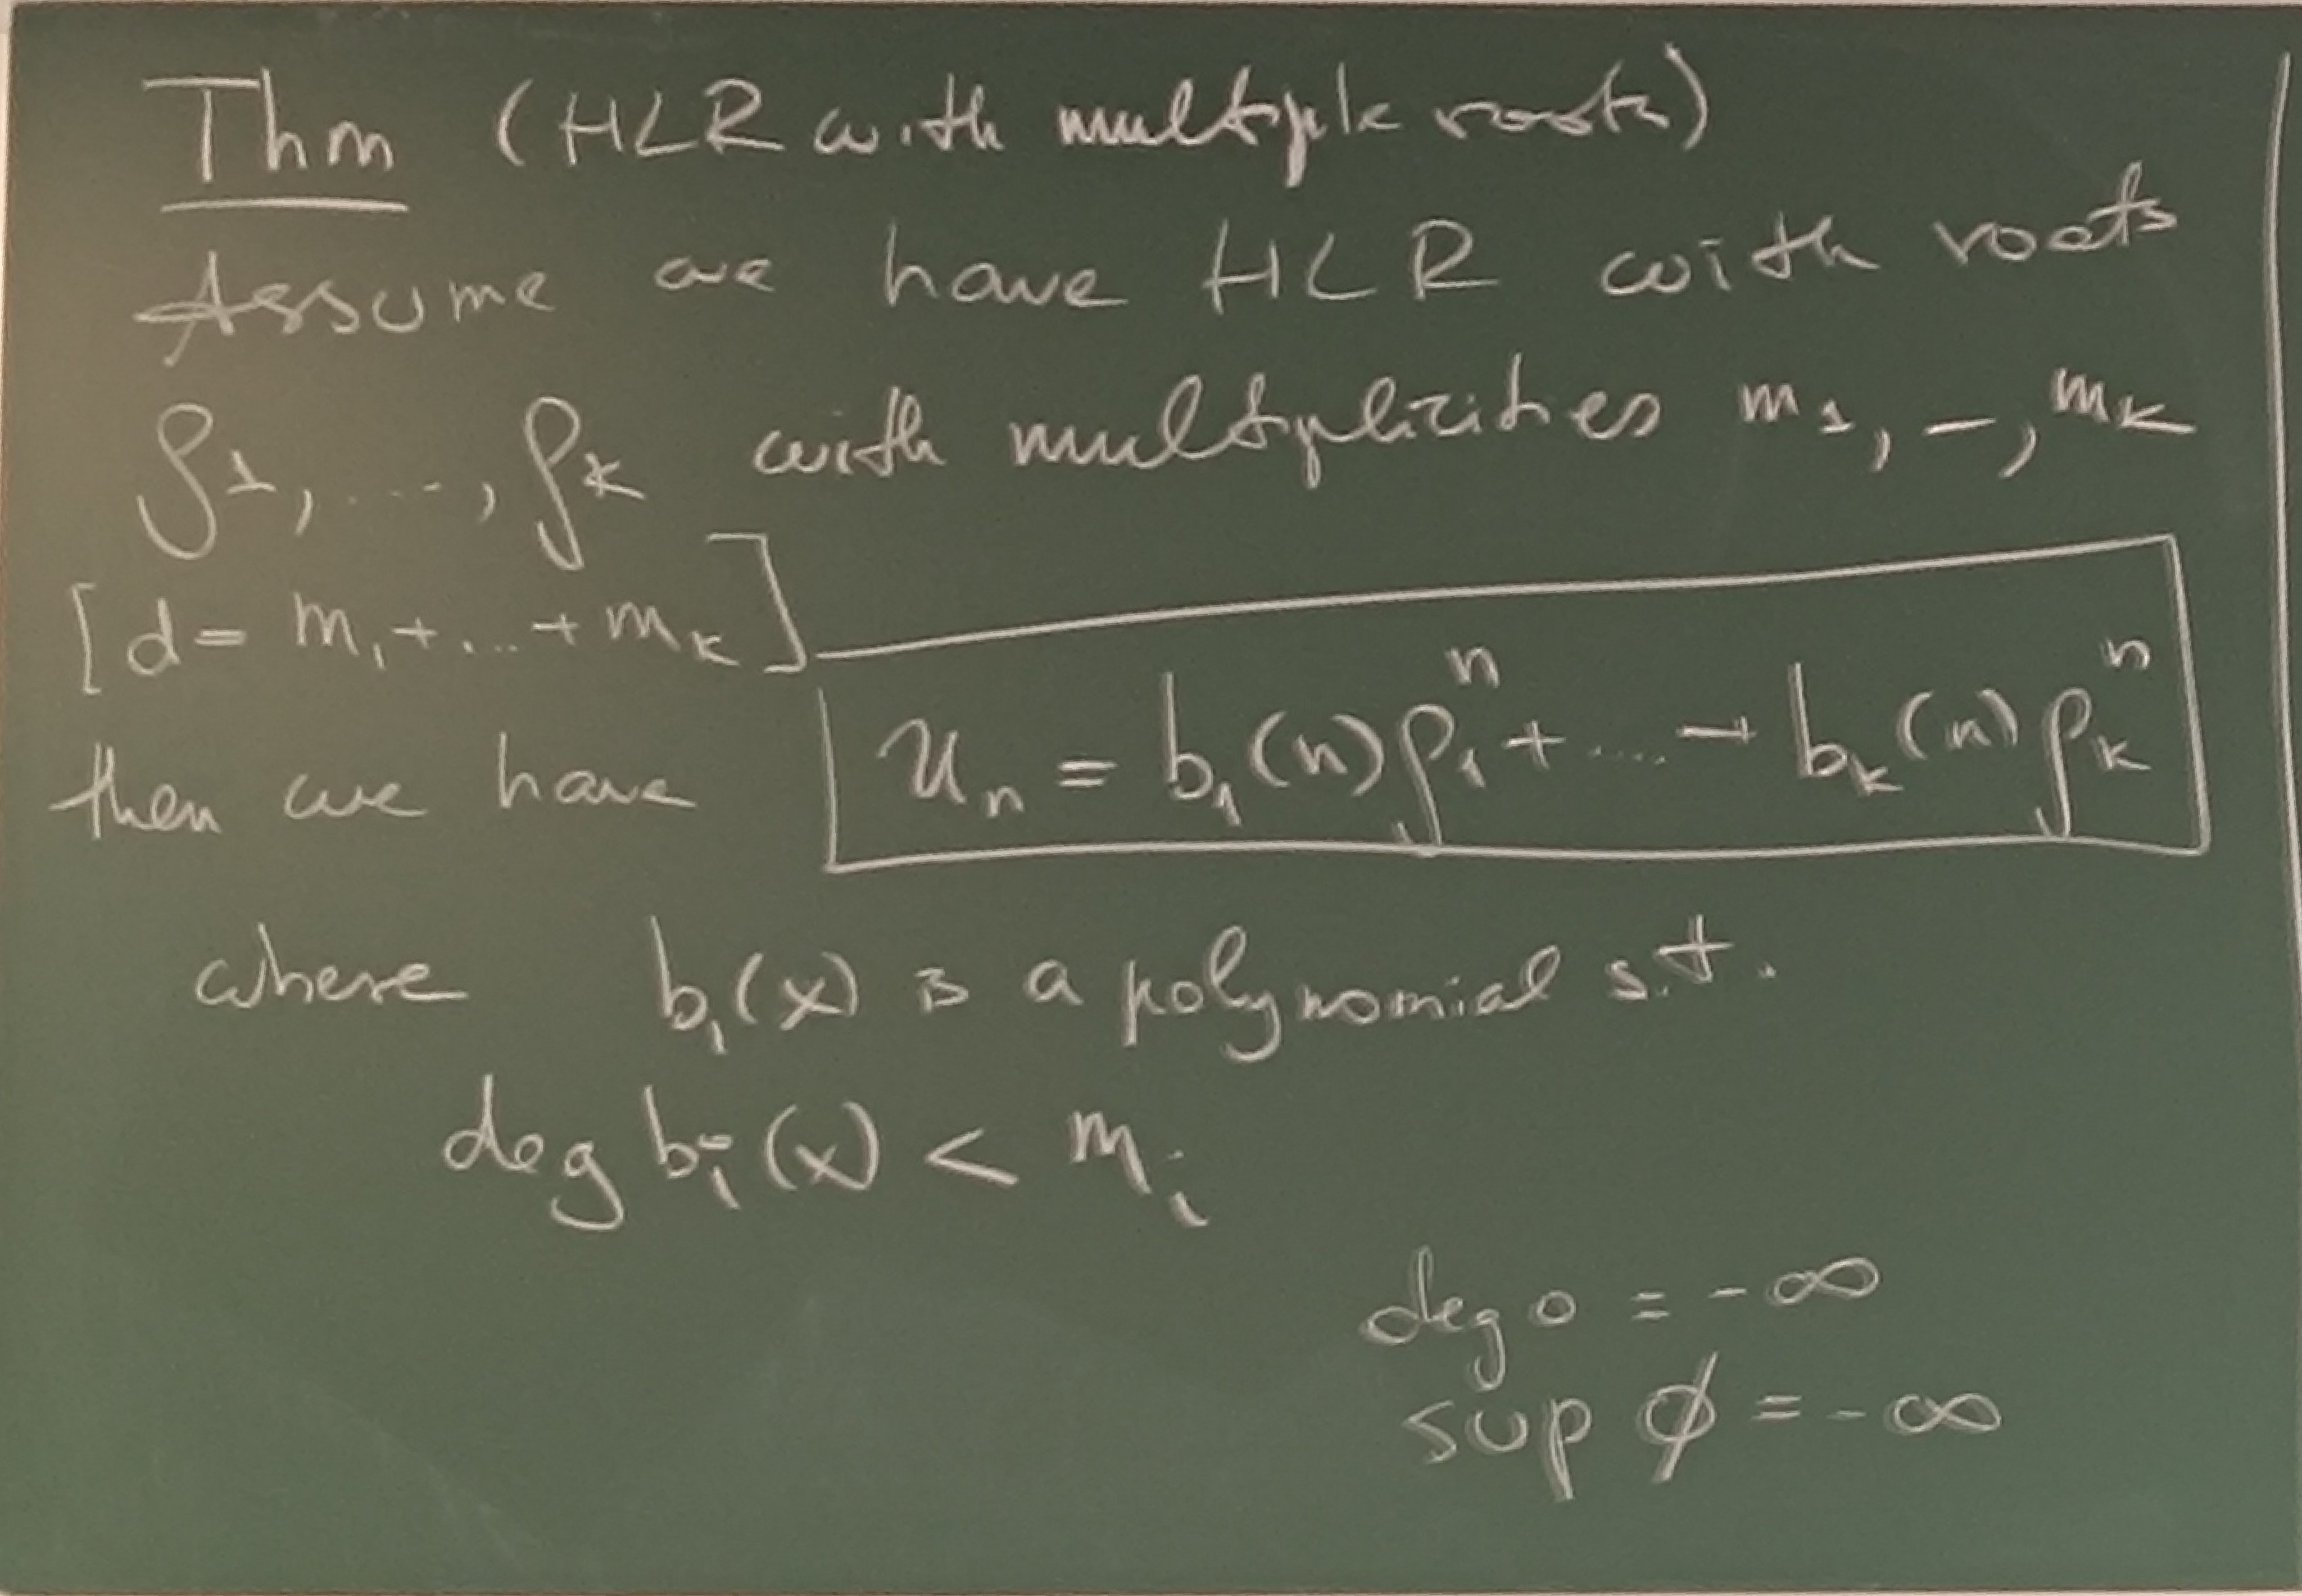 Thm (HLR with multiple roots)
Assume we have HLR with roots
ρ₁, ..., ρₖ with multiplicities m₁, –, mₖ
[d = m₁ + ... + mₖ]
then we have uₙ = b₁(n)ρ₁ⁿ + .... + bₖ(n)ρₖⁿ
where b₁(x) is a polynomial s.t.
deg bᵢ(x) < mᵢ
deg 0 = -∞
sup ∅ = -∞